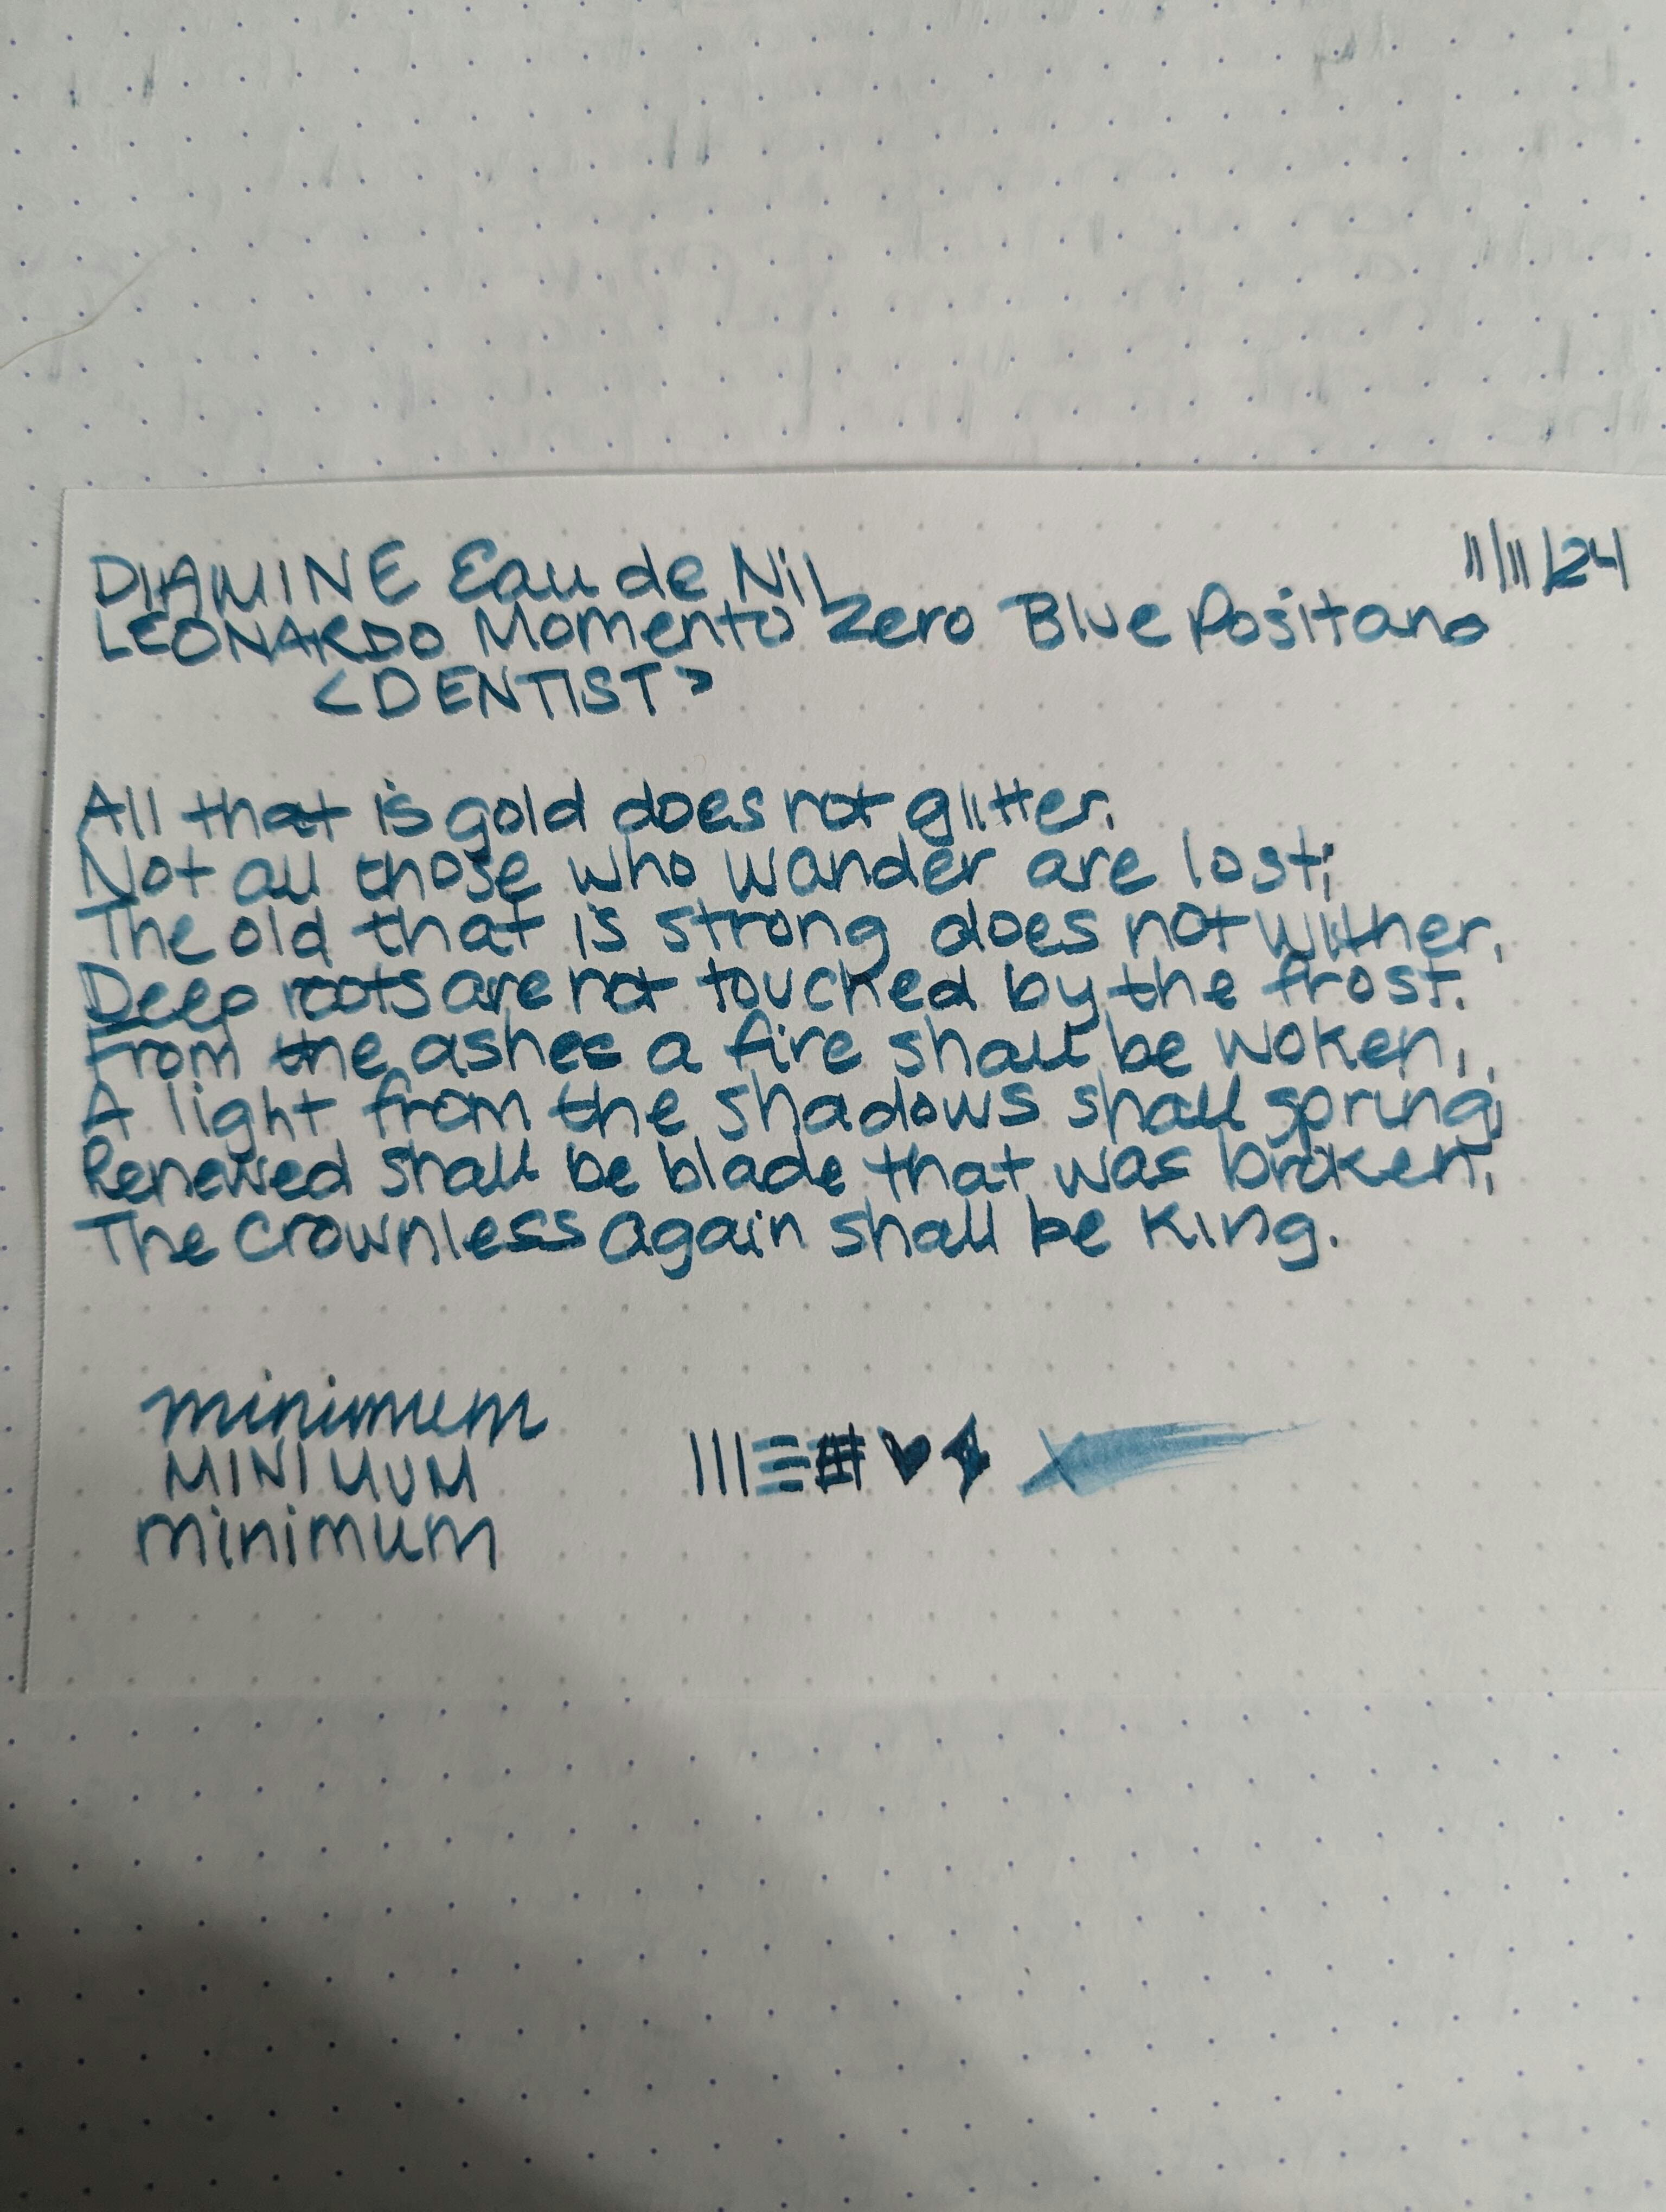 DIAMINE Eau de Nil
11/11/24
LEONARDO Momento Zero Blue Positano
<DENTIST>
All that is gold does not glitter,
Not all those who wander are lost;
The old that is strong does not wither,
Deep roots are not touched by the frost.
From the ashes a fire shall be woken,
A light from the shadows shall spring;
Renewed shall be blade that was broken,
The crownless again shall be King.
minimum
MINIMUM
minimum